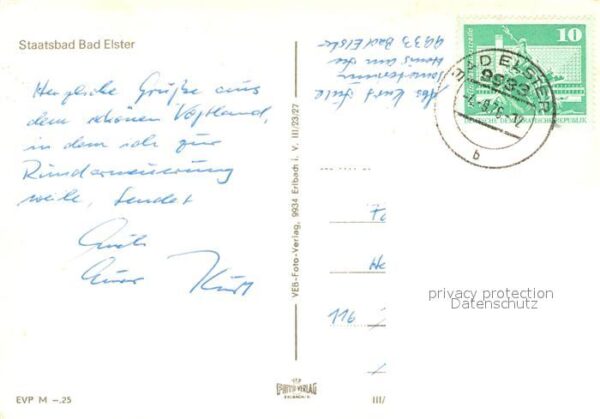 Staatsbad Bad Elster
Herzliche Grüße aus
dem schönen Vogtland,
in dem ich zur
Runderneuerung
weile, sendet
Euch
Euer Kurt
EVP M –.25
VEB-Foto-Verlag, 9934 Erlbach i. V. III/23:27
FOTO-VERLAG
ERLBACH
III/
Abs. Kurt
Sanatorium
9933 Bad Elster
10
DEUTSCHE DEMOKRATISCHE REPUBLIK
BAD ELSTER
9933
b
Fa
He
116
privacy protection
Datenschutz